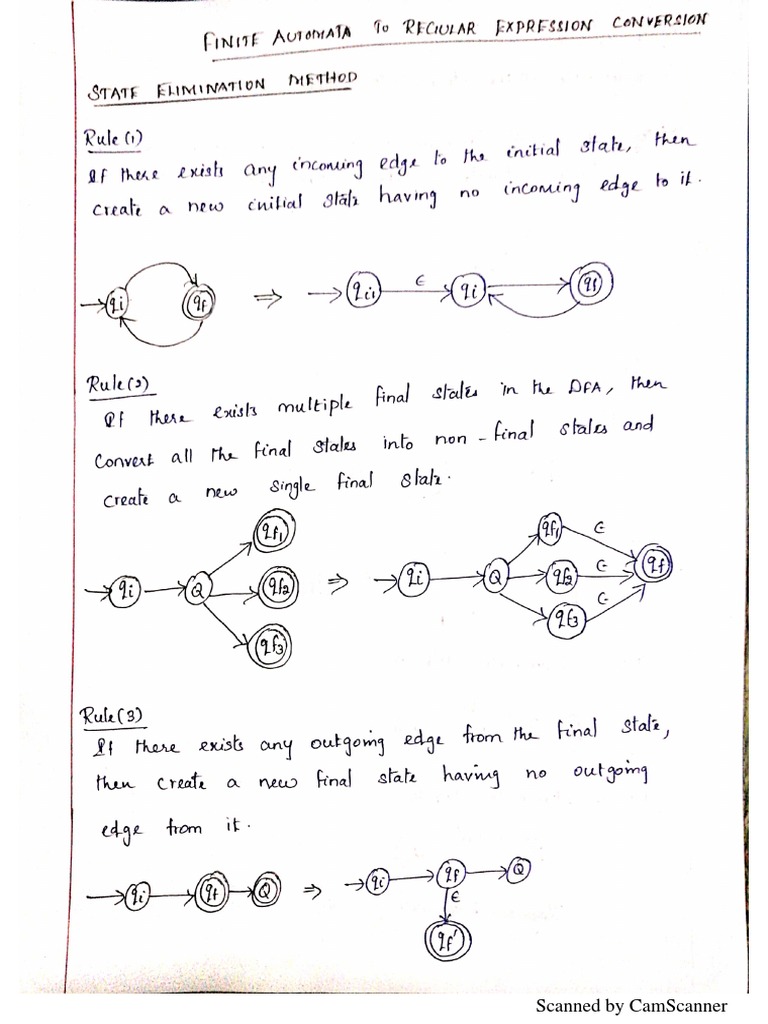 FINITE AUTOMATA TO REGULAR EXPRESSION CONVERSION
STATE ELIMINATION METHOD
Rule (1)
If there exists any incoming edge to the initial state, then
create a new initial state having no incoming edge to it.
qi qf ⇒ qi1 ϵ qi qf
Rule (2)
If there exists multiple final states in the DFA, then
convert all the final states into non-final states and
create a new single final state.
qi Q qf1 qf2 qf3 ⇒ qi Q qf1 ϵ qf2 ϵ qf3 ϵ qf
Rule (3)
If there exists any outgoing edge from the final state,
then create a new final state having no outgoing
edge from it.
qi qf Q ⇒ qi qf Q
ϵ
qf'
Scanned by CamScanner